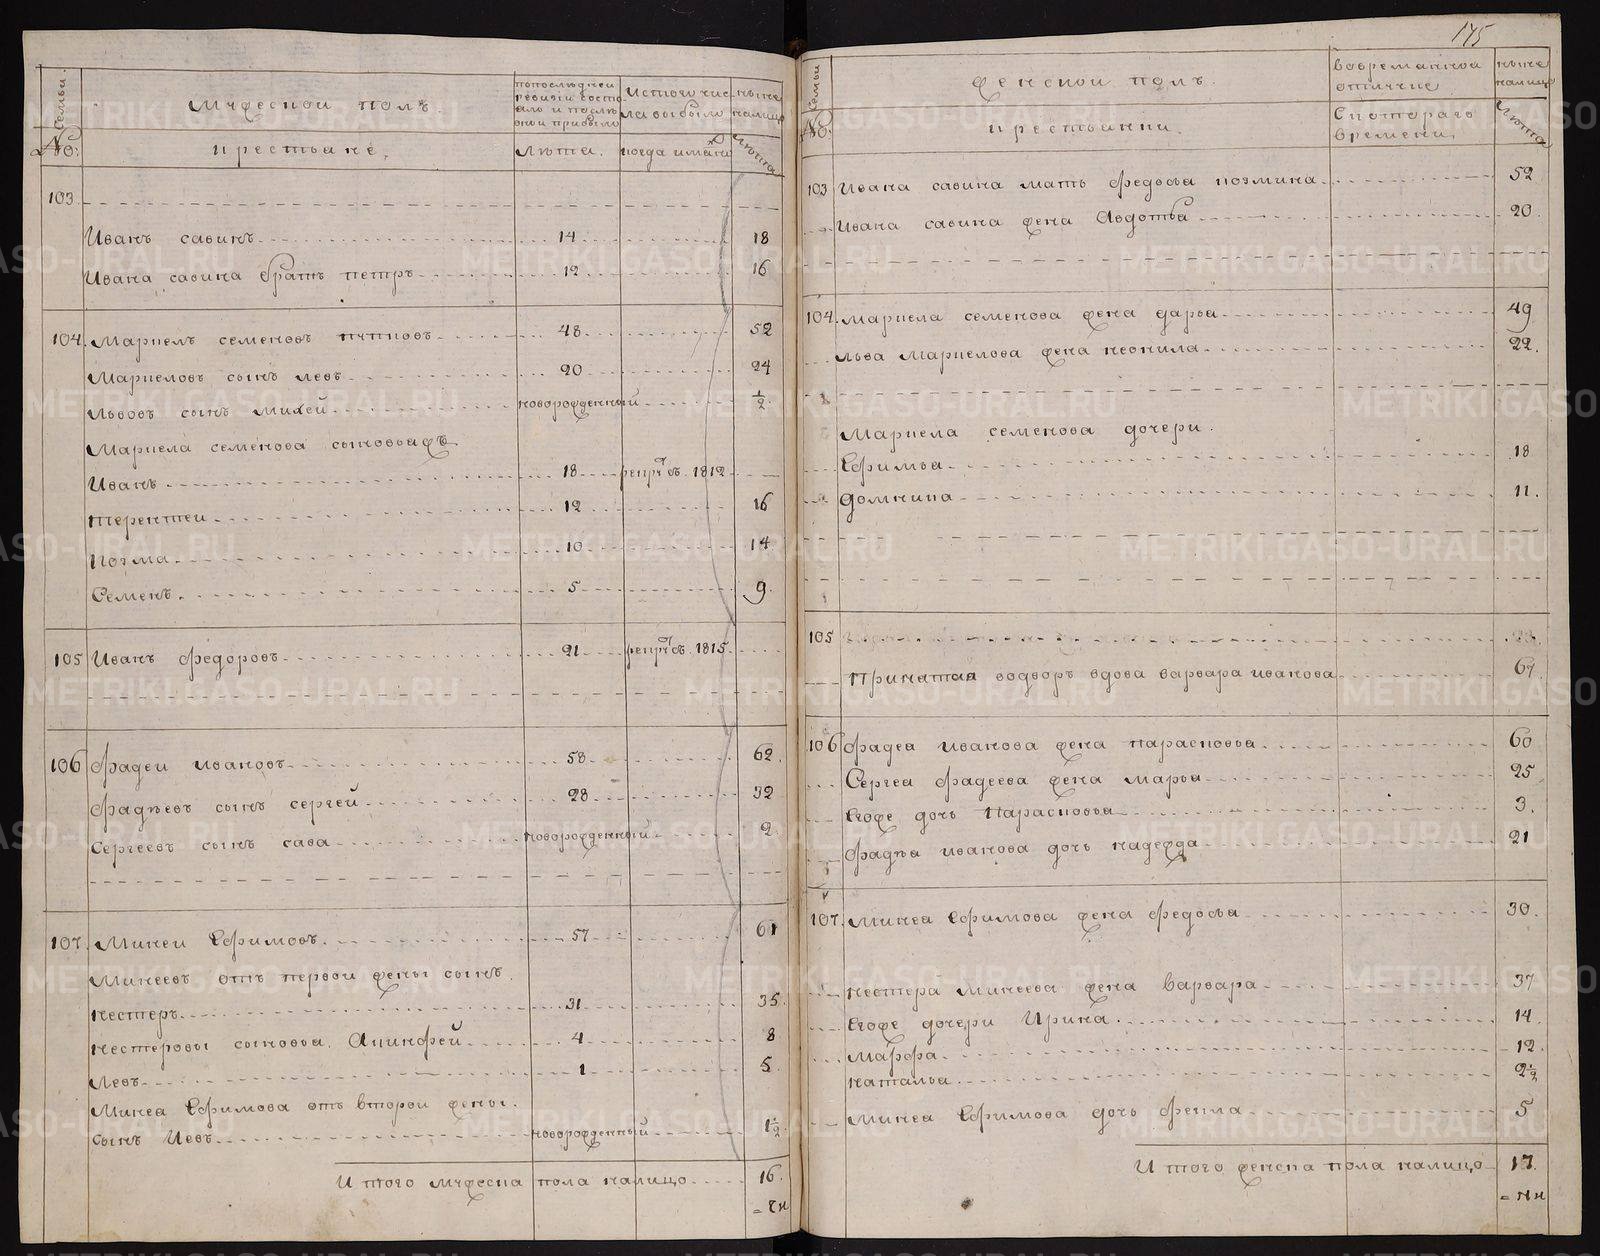 175
Семьи.
№:
мужескои полъ.
крестьане.
попоследней ревизи состо ало и после онои прибыло
лета.
истого чис ла выбыло
когда имянно
ныне налицо
лета
103
Иванъ савинъ 14 18
Ивана савина братъ петръ 12 16
104. Маркелъ семеновъ пупковъ 48 52
Маркеловъ сынъ левъ 20 24
Львовъ сынъ михей новорожденный ½
Маркела семенова сыновьажъ
Иванъ 18 рекрутъ 1812
терентеи 12 16
Козма 10 14
Семенъ 5 9
105 Иванъ федоровъ 21 рекрутъ 1815
106 фадеи ивановъ 58 62
фадеевъ сынъ сергей 28 32
Сергеевъ сынъ сава новорожденный 2
107. Минеи Ефимовъ 57 61
Минеевъ отъ первои жены сынъ
нестеръ 31 35
нестеровы сыновьа Акинфей 4 8
левъ 1 5
Минеа Ефимова отъ второи жены.
сынъ Иевъ новорожденный 1½
И того мужеска пола налицо 16
Семьи
№:
женскои полъ.
крестьанки.
вовременнои отлучке
Скотораго времени.
ныне налицо
лета
103 Ивана савина мать федосьа козмина 52
Ивана савина жена Авдотьа 20
104. Маркела семенова жена дарьа 49
льва Маркелова жена неонила 22.
Маркела семенова дочери.
Ефимьа 18
домника 11.
105
Принатаа водворъ вдова варвара иванова 67
106 фадеа иванова жена парасковьа 60
Сергеа фадеева жена марьа 25
Егоже дочь Парасковьа 3.
фадеа иванова дочь надежда 21
107. Минеа Ефимова жена федосьа 30.
нестера Минеева жена варвара 37
Егоже дочери Ирина 14
Марфа 12
натальа 2½
Минеа Ефимова дочь фекла 5
И того женска пола налицо 17
METRIKI.GASO-URAL.RU